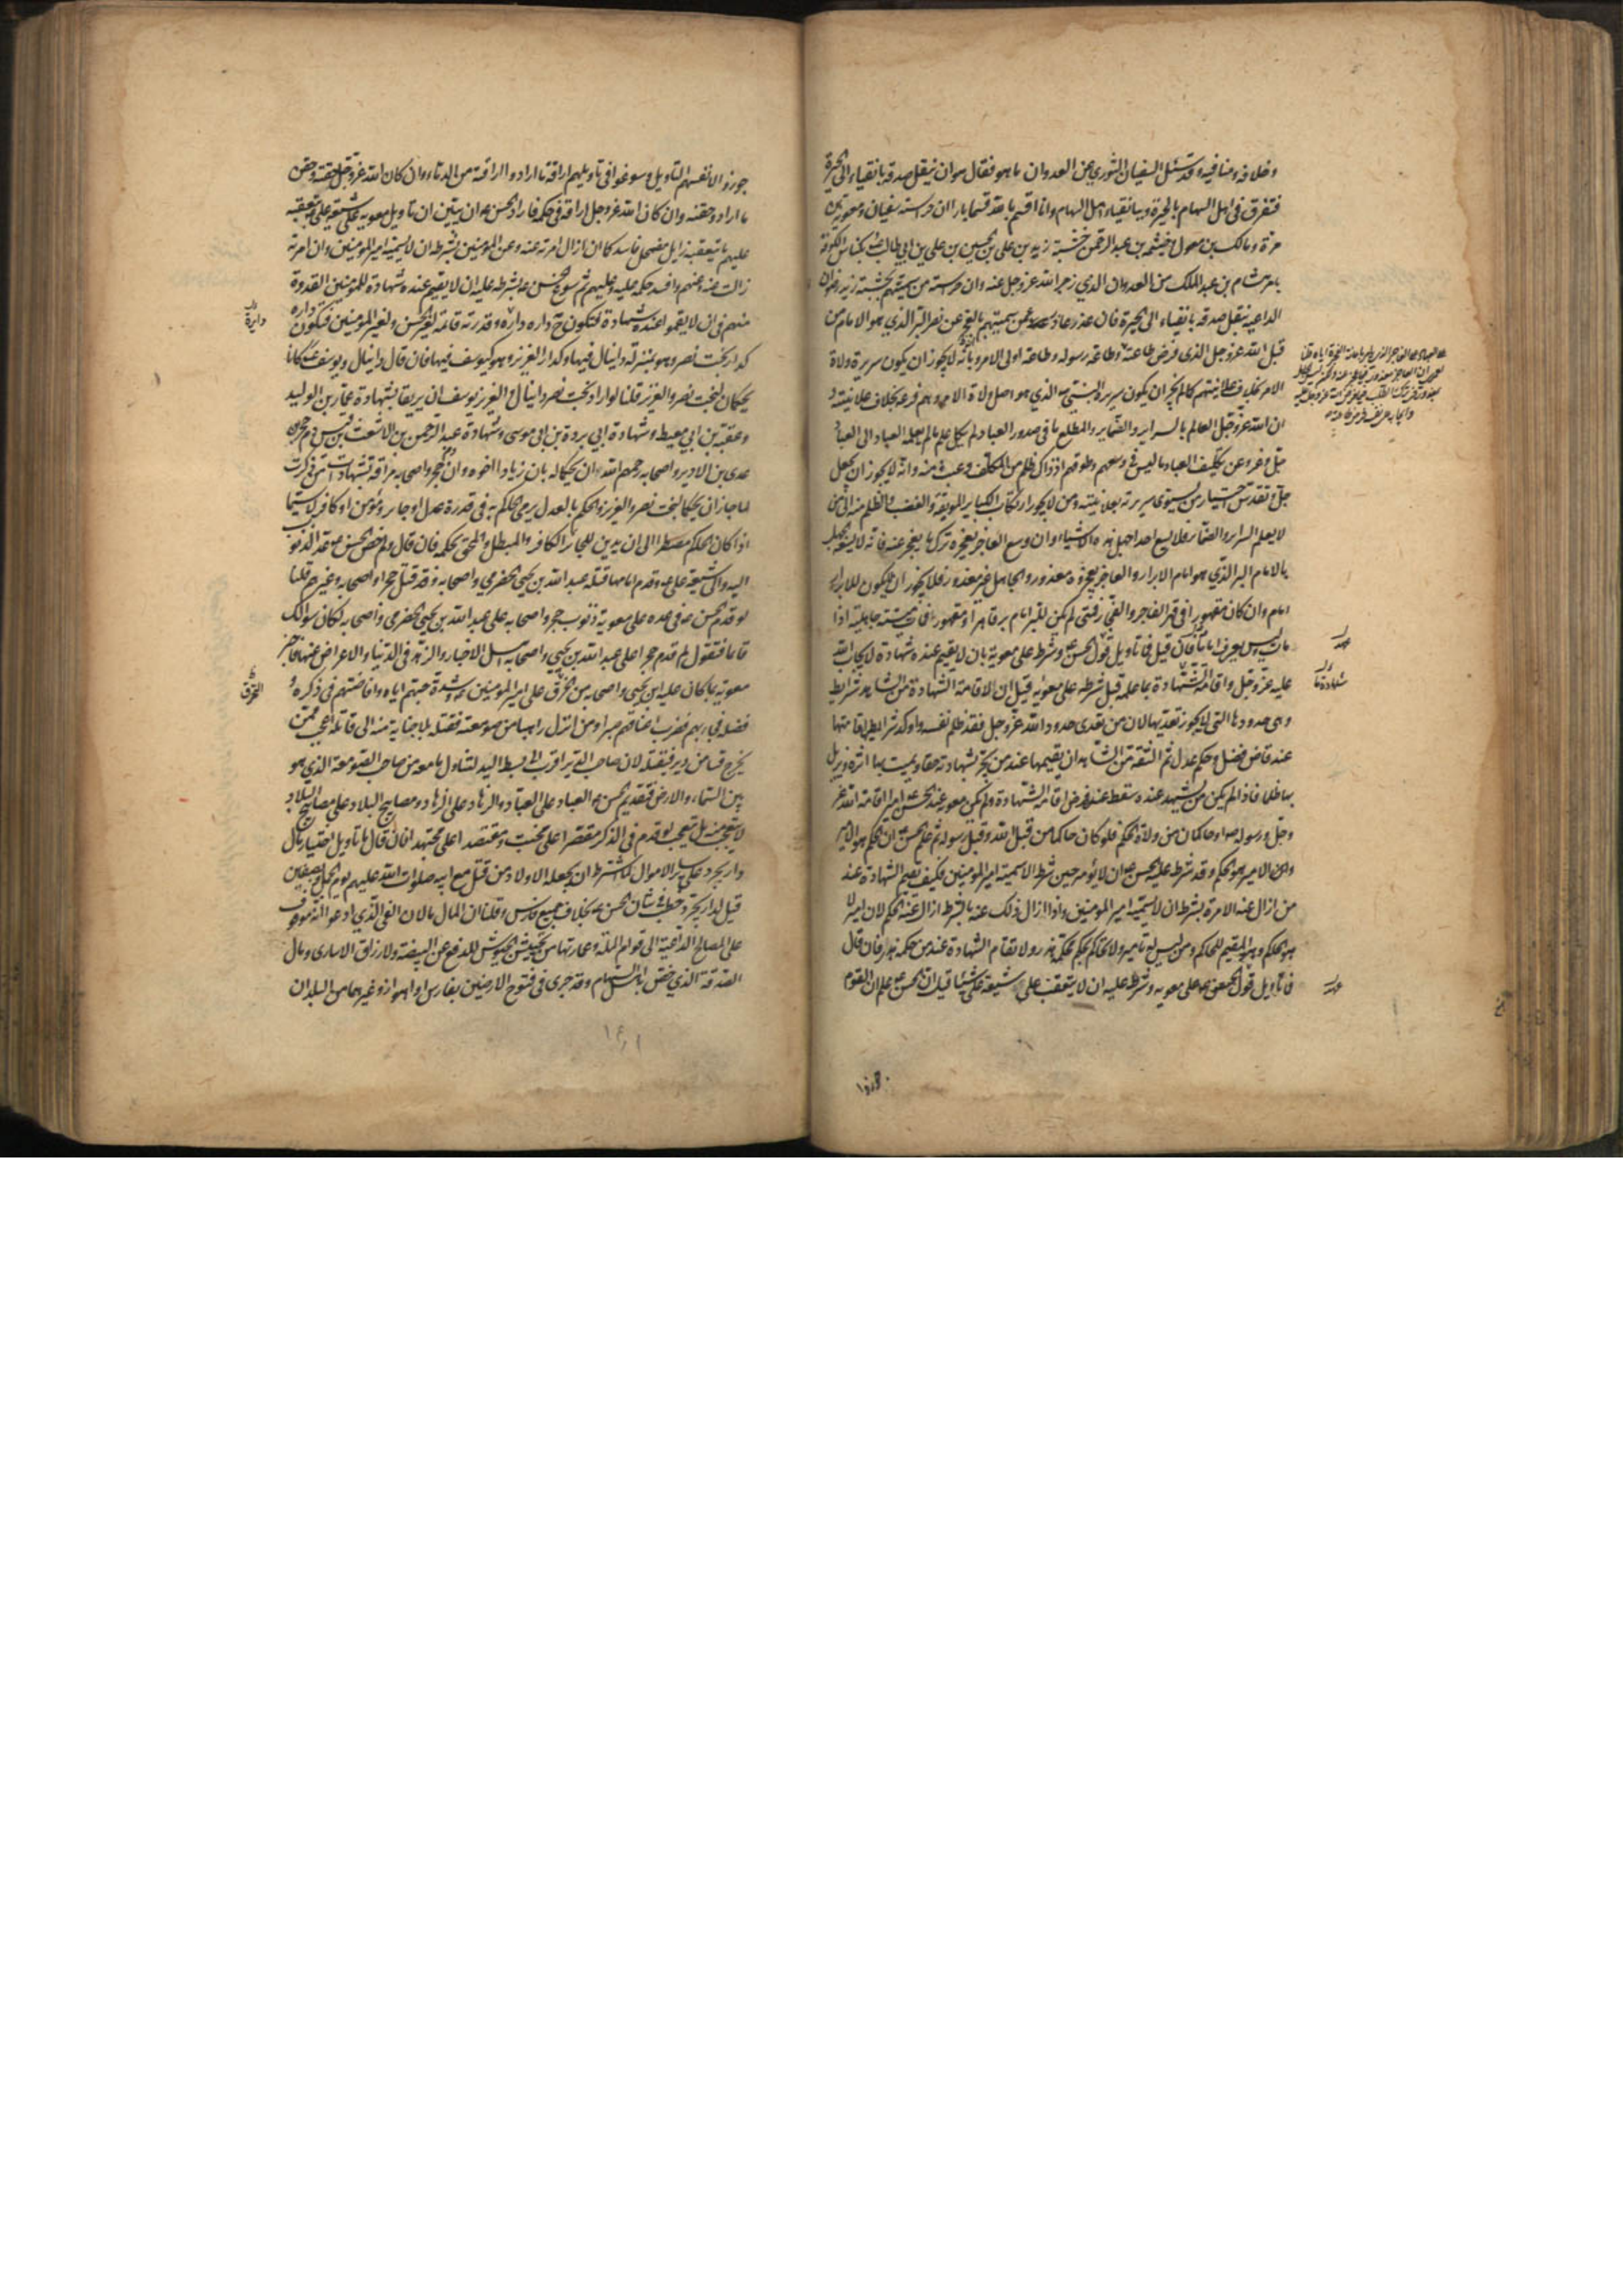 وخلافه ومنافيه وقد سئل السفيان الثوري عن العدوان ما هو فقال هو ان ينقل صدقة بانقياء الى الحيرة
فتفرق في اهل السهام بالحيرة وببانقياء اهل السهام وانا اقسم بالله قسما بارا ان حراسة سفيان ومعوية بن
مرة ومالك بن معول وخيثمة بن عبد الرحمن خشبة زيد بن علي بن الحسين بن علي بن ابي طالب بكناس الكوفة
بامر هشام بن عبد الملك من العدوان الذي زجر الله عز وجل عنه وان حراسة من سميتهم بخشبة زيد رضوان
الداعية بنقل صدقة بانقياء الى الحيرة فان عذر عاذر عمن سميتهم بالعجز عن نصر البر الذي هو الامام من
قبل الله عز وجل الذي فرض طاعته وطاعة رسوله وطاعة اولى الامر وبانه لا يجوز ان يكون سريرة ولاة
الامر بخلاف علانيتهم كما لم يجز ان يكون سريرة النبي الذي هو اصل ولاة الامر وهم فرعه بخلاف علانيته و
ان الله عز وجل العالم بالسراير والضماير والمطلع على ما في صدور العباد لم يكل علم ما لم يعلمه العباد الى العباد
جل وعز عن تكليف العباد ما ليس في وسعهم وطوقهم اذ ذاك ظلم من المكلف وعبث منه وانه لا يجوز ان يجعل
جل وتقدس اختيار من يستوي سريرته بعلانيته ومن لا يجوز ارتكاب الكباير الموبقة والغصب والظلم منه الى من
لا يعلم السراير والضماير فلا يسع احدا جهل هذه الاشياء وان وسع العاجز بعجزه ترك ما يعجز عنه فانه لا يسعه الجهل
بالامام البر الذي هو امام الابرار والعاجز بعجزه معذور والجاهل غير معذور فلا يجوز ان لا يكون للابرار
امام وان كان مقهورا في قهر الفاجر والفجار فمتى لم يكن للبر امام بر قاهر او مقهور فمات ميتة جاهلية اذا
مات وليس يعرف امامه فان قيل فما تاويل قول الحسن وشرطه على معوية بان لا يقيم عنده شهادة لايجاب الله
عليه عز وجل واقامة الشهادة بما علمه قبل شرطه على معوية قيل ان لاقامة الشهادة من الشاهد شرايط
وهي حدودها التي لا يجوز تعديها لان من تعدى حدود الله عز وجل فقد ظلم نفسه واوكد شرايطها اقامتها
عند قاض فصل وحكم عدل ثم الثقة من الشاهد ان يقيمها عند من يجر بشهادته حقا ويميت بها اثرة ويزيل
بها ظلما فاذا لم يكن من يشهد عنده سقط عنه فرض اقامة الشهادة ولم يكن معوية عند الحسن اميرا اقامه الله عز
وجل ورسوله او حاكما من ولاة الحكم فلو كان حاكما من قبل الله وقبل رسوله ثم علم الحسن ان الحكم هو الامير
وان الامير هو الحكم وقد شرط عليه الحسن ان لا يؤمر حين شرط الا يسميه امير المؤمنين فكيف يقيم الشهادة عند
من ازال عنه الامرة بشرط ان لا يسميه امير المؤمنين واذا ازال ذلك عنه بالشرط ازال عنه الحكم لان الامير
هو الحاكم وهو المقيم للحاكم ومن ليس له تامير ولا تحاكم فحكمه هذر ولا تقام الشهادة عند من حكمه هذر فان قال
فما تاويل قول الحسن على معوية وشرطه عليه ان لا يتعقب على شيعة علي شيئا قيل ان الحسن علم ان القوم
جوزوا لانفسهم التاويل وسوغوا في تاويلهم اراقة ما ارادوا اراقته من الدماء وان كان الله عز وجل حقنه وحقن
ما ارادوا حقنه وان كان الله عز وجل اراقه في حكمه فاراد الحسن ان يبين ان تاويل معوية على شيعة علي بتعقبه
عليهم ما يتعقبه زايل مضمحل فاسد كما انه ازال امرته عنه وعن المؤمنين بشرطه ان لا يسميه امير المؤمنين وان امرته
زالت عنه وعنهم وافسد حكمه عليه وعليهم ثم سوغ الحسن بشرطه عليه ان لا يقيم عنده شهادة للمؤمنين القدوة
منهم في ان لا يقيموا عنده شهادة فتكون ح داره دايرة وقدرته قائمة لغير الحسن ولغير المؤمنين فتكون داره
كدار بخت نصر وهو بمنزلة دانيال فيها وكدار العزيز وهو كيوسف فيها فان قال دانيال ويوسف كانا
يحكمان لبخت نصر والعزيز قلنا لو اراد بخت نصر دانيال والعزيز يوسف ان يريقا بشهادة عمار بن الوليد
وعقبة بن ابي معيط وشهادة ابي بردة بن ابي موسى وشهادة عبد الرحمن بن الاشعث بن قيس دم حجر بن
عدي بن الادبر واصحابه رحمهم الله وان يحكما له بان زيادا اخوه وان دم حجر واصحابه مراقة بشهادة من ذكرت
لما جاز ان يحكما لبخت نصر والعزيز والحكم بالعدل يرمي الحاكم به في قدرة عدل او جاير ومؤمن او كافر لا سيما
اذا كان الحاكم مضطرا الى ان يدين للجاير الكافر والمبطل والمحق بحكمه فان قال ولم خص الحسن عد الذنوب
اليه والى شيعة علي وقدم امامها قتلة عبد الله بن يحيى الحضرمي واصحابه وقد قتل حجر واصحابه وغيرهم قلنا
لو قدم الحسن في عده على معوية ذنوب حجر واصحابه على عبد الله بن يحيى الحضرمي واصحابه لكان سؤالك
قائما فتقول لم قدم حجرا على عبد الله بن يحيى واصحابه اهل الاخيار والزهد في الدنيا والاعراض عنها فاخبر
معوية بما كان عليه ابن يحيى واصحابه من الخرق على امير المؤمنين وشدة حبهم اياه وافاضتهم في ذكره و
فضله فجاء بهم فضرب اعناقهم صبرا ومن انزل راهبا من صومعته فقتله بلا جناية منه الى قاتله اعجب ممن
يخرج قسا من دير فيقتله لان صاحب الدير اقرب الى بسط اليد لتناول ما معه من صاحب الصومعة الذي هو
بين السماء والارض فتقديم الحسن العباد على العباد والزهاد على الزهاد ومصابيح البلاد على مصابيح البلاد
لا يتعجب منه بل يتعجب لو قدم في الذكر مقصرا على مخبت ومقتصدا على مجتهد فان قال ما تاويل اختيار مال
دارابجرد على ساير الاموال لما اشترط ان يجعله لاولاد من قتل مع ابيه صلوات الله عليهم يوم الجمل وبصفين
قيل لدارابجرد خطب في شان الحسن بخلاف جميع فارس وقلنا ان المال مالان الفئ الذي ادعوا انه موقوف
على المصالح الداعية الى قوام الملة وعمارتها من تجييش الجيوش للدفع عن البيضة ولارزاق الاسارى ومال
الصدقة الذي خص به اهل السهام وقد جرى في فتوح الارضين بفارس والاهواز وغيرهما من البلدان
دايرة
الخرق